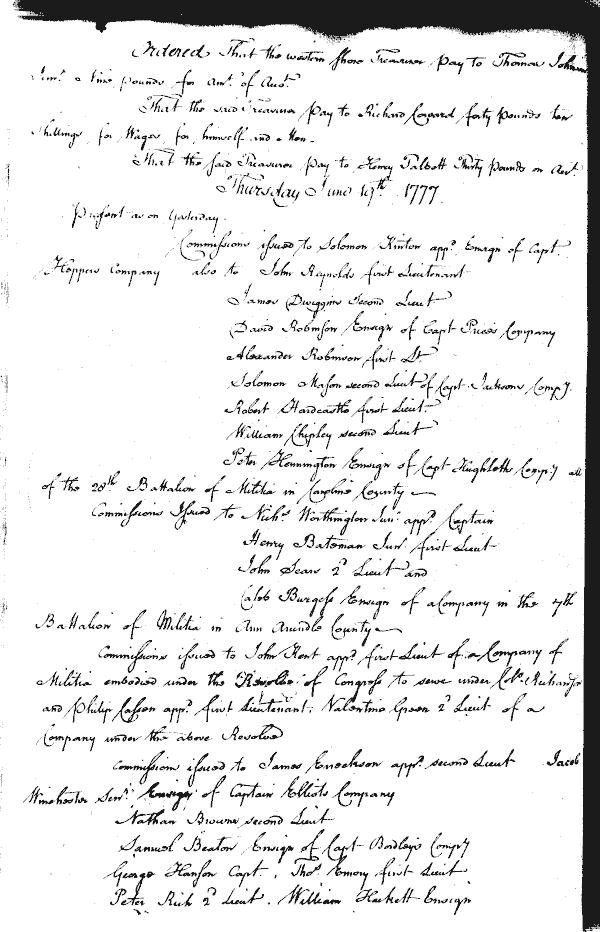 Ordered That the western Shore Treasurer pay to Thomas Johnson
Jun.r nine pounds for Am.t of Acc.t
That the said Treasurer pay to Richard Coward forty pounds ten
Shillings for Wages for himself and Men.
That the said Treasurer pay to Henry Talbott Thirty pounds on Acc.t
Thursday June 19th 1777.
Present as on Yesterday.
Commissions issued to Solomon Kinton app.d Ensign of Capt.
Hoppers Company also to John Reynolds first Lieutenant
James Dwiggins Second Lieut
David Robinson Ensign of Capt Prices Company
Alexander Robinson first Lt.
Solomon Mason second Lieut of Capt. Jacksons Comp.y
Robert Hardcastle first Lieut.
William Chipley second Lieut
Peter Hennington Ensign of Capt Hughletts Comp.y all
of the 28th Battalion of Militia in Caroline County
Commissions Issued to Nich.s Worthington Jun.r app.d Captain
Henry Bateman Jun.r first Lieut
John Sears 2.d Lieut and
Caleb Burgess Ensign of a Company in the 7th
Battalion of Militia in Ann Arundle County
Commissions issued to John Kent app.d first Lieut of a Company of
Militia embodied under the Resolve of Congress to serve under Col.o Richardson
and Philip Casson app.d first Lieutenant; Valentine Green 2.d Lieut of a
Company under the above Resolve
Commission issued to James Enockson app.d second Lieut Jacob
Winchester Sen.r Ensign of Captain Elliots Company
Nathan Browne second Lieut
Samuel Beaton Ensign of Capt Bordleys Comp.y
George Hanson Capt. Tho.s Emory first Lieut
Peter Rich 2.d Lieut. William Hackett Ensign